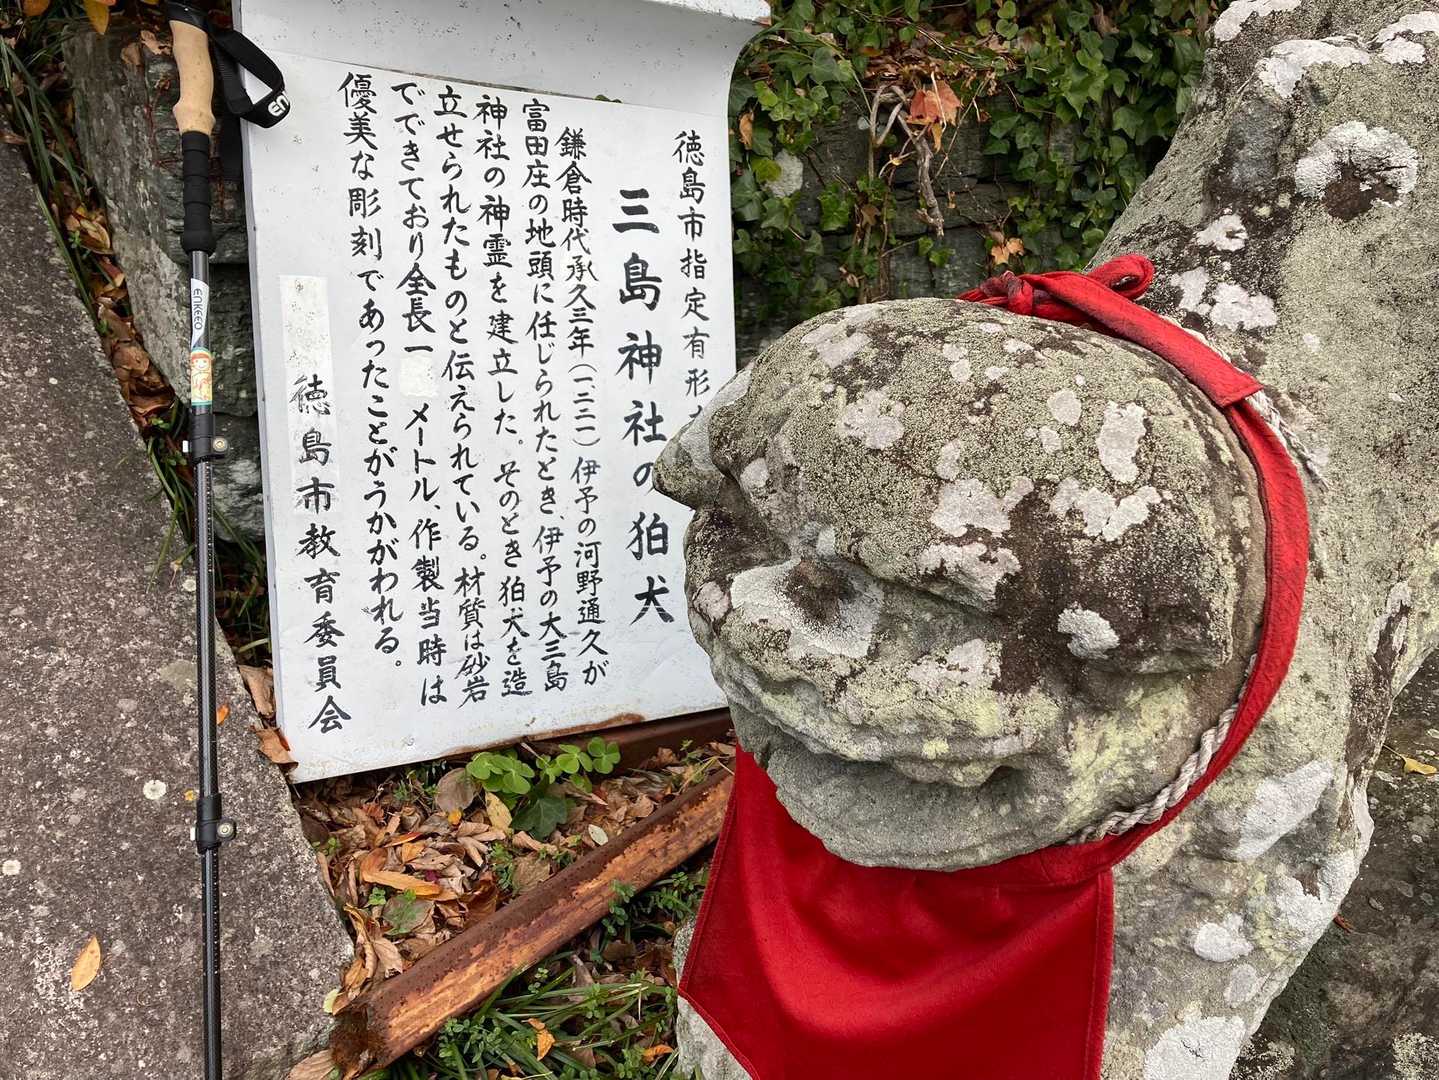 徳島市指定有形
三島神社の狛犬
鎌倉時代承久三年(一二二一)伊予の河野通久が
富田庄の地頭に任じられたとき、伊予の大三島
神社の神霊を建立した。そのとき狛犬を造
立せられたものと伝えられている。材質は砂岩
でできており全長一 メートル、作製当時は
優美な彫刻であったことがうかがわれる。
徳島市教育委員会
ENKEEO